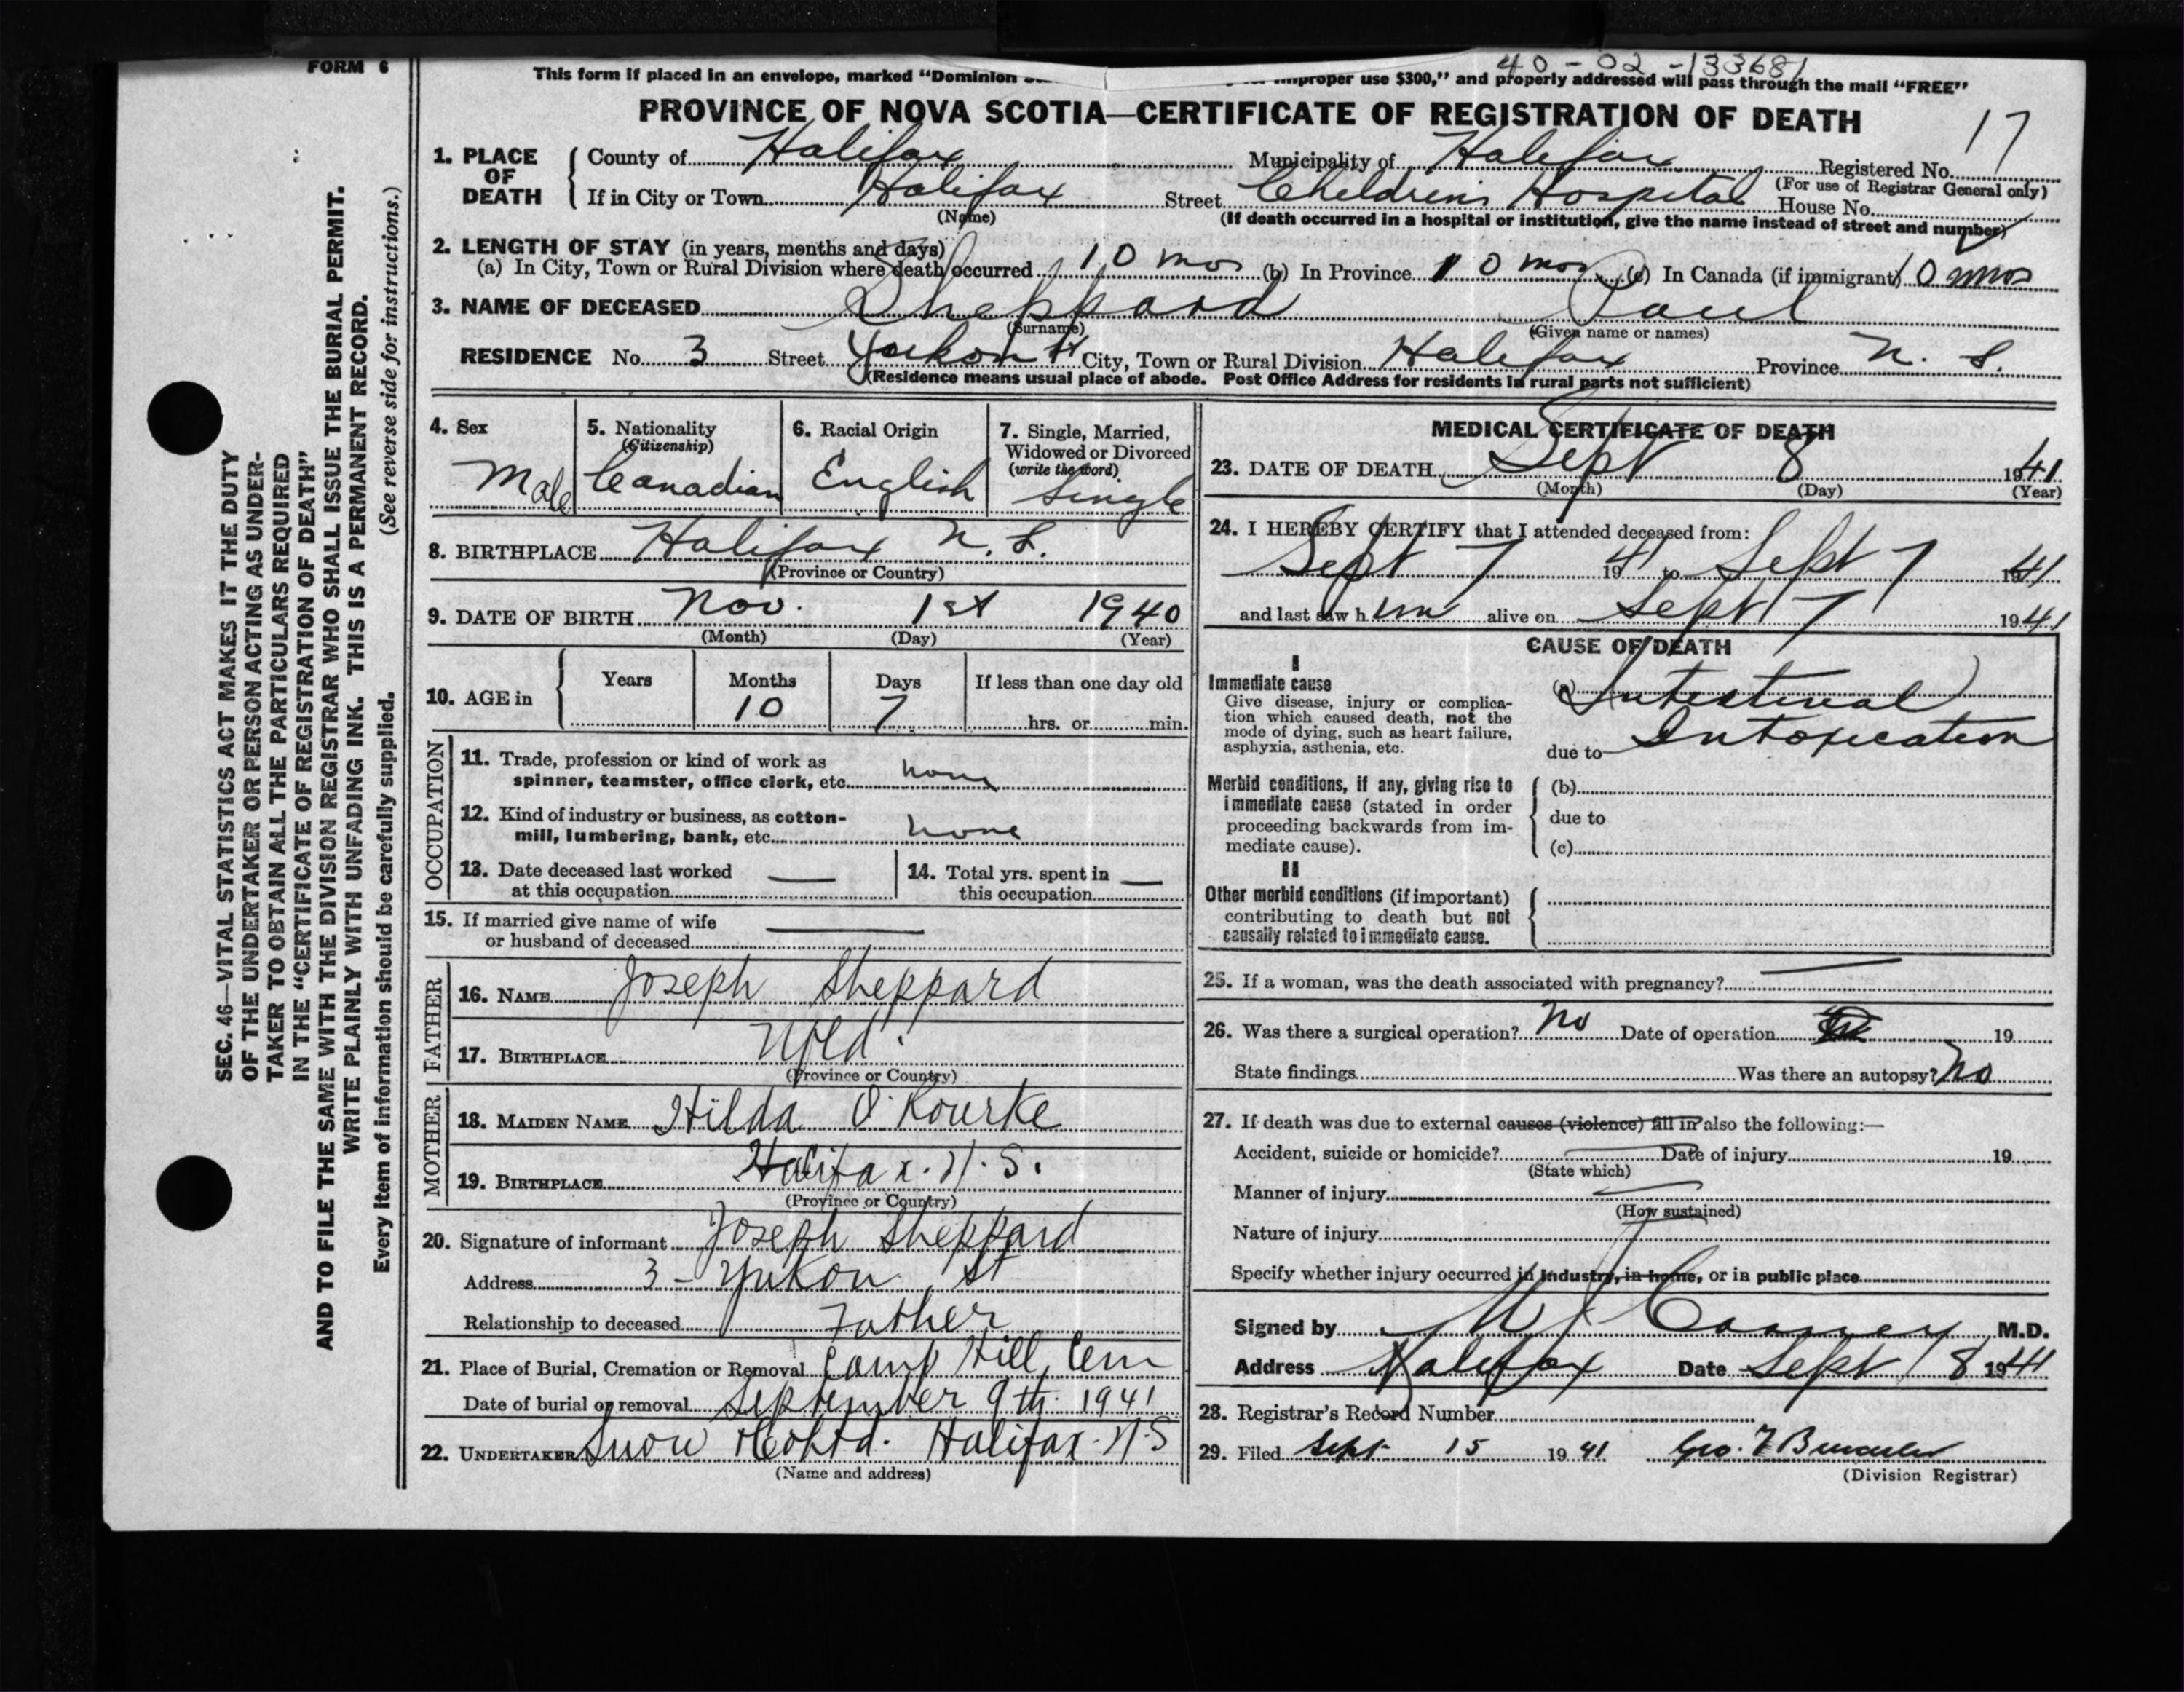 FORM 6
40-02-133681
This form if placed in an envelope, marked "Dominion improper use $300," and properly addressed will pass through the mail "FREE"
PROVINCE OF NOVA SCOTIA—CERTIFICATE OF REGISTRATION OF DEATH
17
1. PLACE OF DEATH County of Halifax Municipality of Halifax Registered No.
(For use of Registrar General only)
If in City or Town Halifax Street Children's Hospital House No.
(Name) (If death occurred in a hospital or institution, give the name instead of street and number)
2. LENGTH OF STAY (in years, months and days)
(a) In City, Town or Rural Division where death occurred 10 mos (b) In Province 10 mos (c) In Canada (if immigrant) 10 mos
3. NAME OF DECEASED Sheppard Paul
(Surname) (Given name or names)
RESIDENCE No. 3 Street Yukon St City, Town or Rural Division Halifax Province N. S.
(Residence means usual place of abode. Post Office Address for residents in rural parts not sufficient)
4. Sex Male
5. Nationality (Citizenship) Canadian
6. Racial Origin English
7. Single, Married, Widowed or Divorced (write the word) Single
8. BIRTHPLACE Halifax N. S.
(Province or Country)
9. DATE OF BIRTH Nov. 1st 1940
(Month) (Day) (Year)
10. AGE in Years Months Days If less than one day old
10 7 hrs. or min.
OCCUPATION
11. Trade, profession or kind of work as
spinner, teamster, office clerk, etc. none
12. Kind of industry or business, as cotton-
mill, lumbering, bank, etc. none
13. Date deceased last worked
at this occupation —
14. Total yrs. spent in
this occupation —
15. If married give name of wife
or husband of deceased —
FATHER
16. NAME Joseph Sheppard
17. BIRTHPLACE Nfld.
(Province or Country)
MOTHER
18. MAIDEN NAME Hilda O'Rourke
19. BIRTHPLACE Halifax. N. S.
(Province or Country)
20. Signature of informant Joseph Sheppard
Address 3 - Yukon St
Relationship to deceased Father
21. Place of Burial, Cremation or Removal Camp Hill, Cem
Date of burial or removal September 9th. 1941
22. UNDERTAKER Snow & Co Ltd. Halifax. N. S
(Name and address)
MEDICAL CERTIFICATE OF DEATH
23. DATE OF DEATH Sept 8 1941
(Month) (Day) (Year)
24. I HEREBY CERTIFY that I attended deceased from:
Sept 7 1941 to Sept 7 1941
and last saw him alive on Sept 7 1941
CAUSE OF DEATH
I
Immediate cause
Give disease, injury or complica-
tion which caused death, not the
mode of dying, such as heart failure,
asphyxia, asthenia, etc.
(a) Intestinal
due to Intoxication
Morbid conditions, if any, giving rise to
immediate cause (stated in order
proceeding backwards from im-
mediate cause).
(b)
due to
(c)
II
Other morbid conditions (if important)
contributing to death but not
causally related to immediate cause.
25. If a woman, was the death associated with pregnancy? —
26. Was there a surgical operation? No Date of operation 19
State findings Was there an autopsy? No
27. If death was due to external causes (violence) fill in also the following:—
Accident, suicide or homicide? Date of injury 19
(State which)
Manner of injury
(How sustained)
Nature of injury
Specify whether injury occurred in industry, in home, or in public place
Signed by M. D.
Address Halifax Date Sept 8 1941
28. Registrar's Record Number
29. Filed Sept 15 1941 Geo.
(Division Registrar)
SEC. 46—VITAL STATISTICS ACT MAKES IT THE DUTY
OF THE UNDERTAKER OR PERSON ACTING AS UNDER-
TAKER TO OBTAIN ALL THE PARTICULARS REQUIRED
IN THE "CERTIFICATE OF REGISTRATION OF DEATH"
AND TO FILE THE SAME WITH THE DIVISION REGISTRAR WHO SHALL ISSUE THE BURIAL PERMIT.
WRITE PLAINLY WITH UNFADING INK. THIS IS A PERMANENT RECORD.
Every item of information should be carefully supplied. (See reverse side for instructions.)